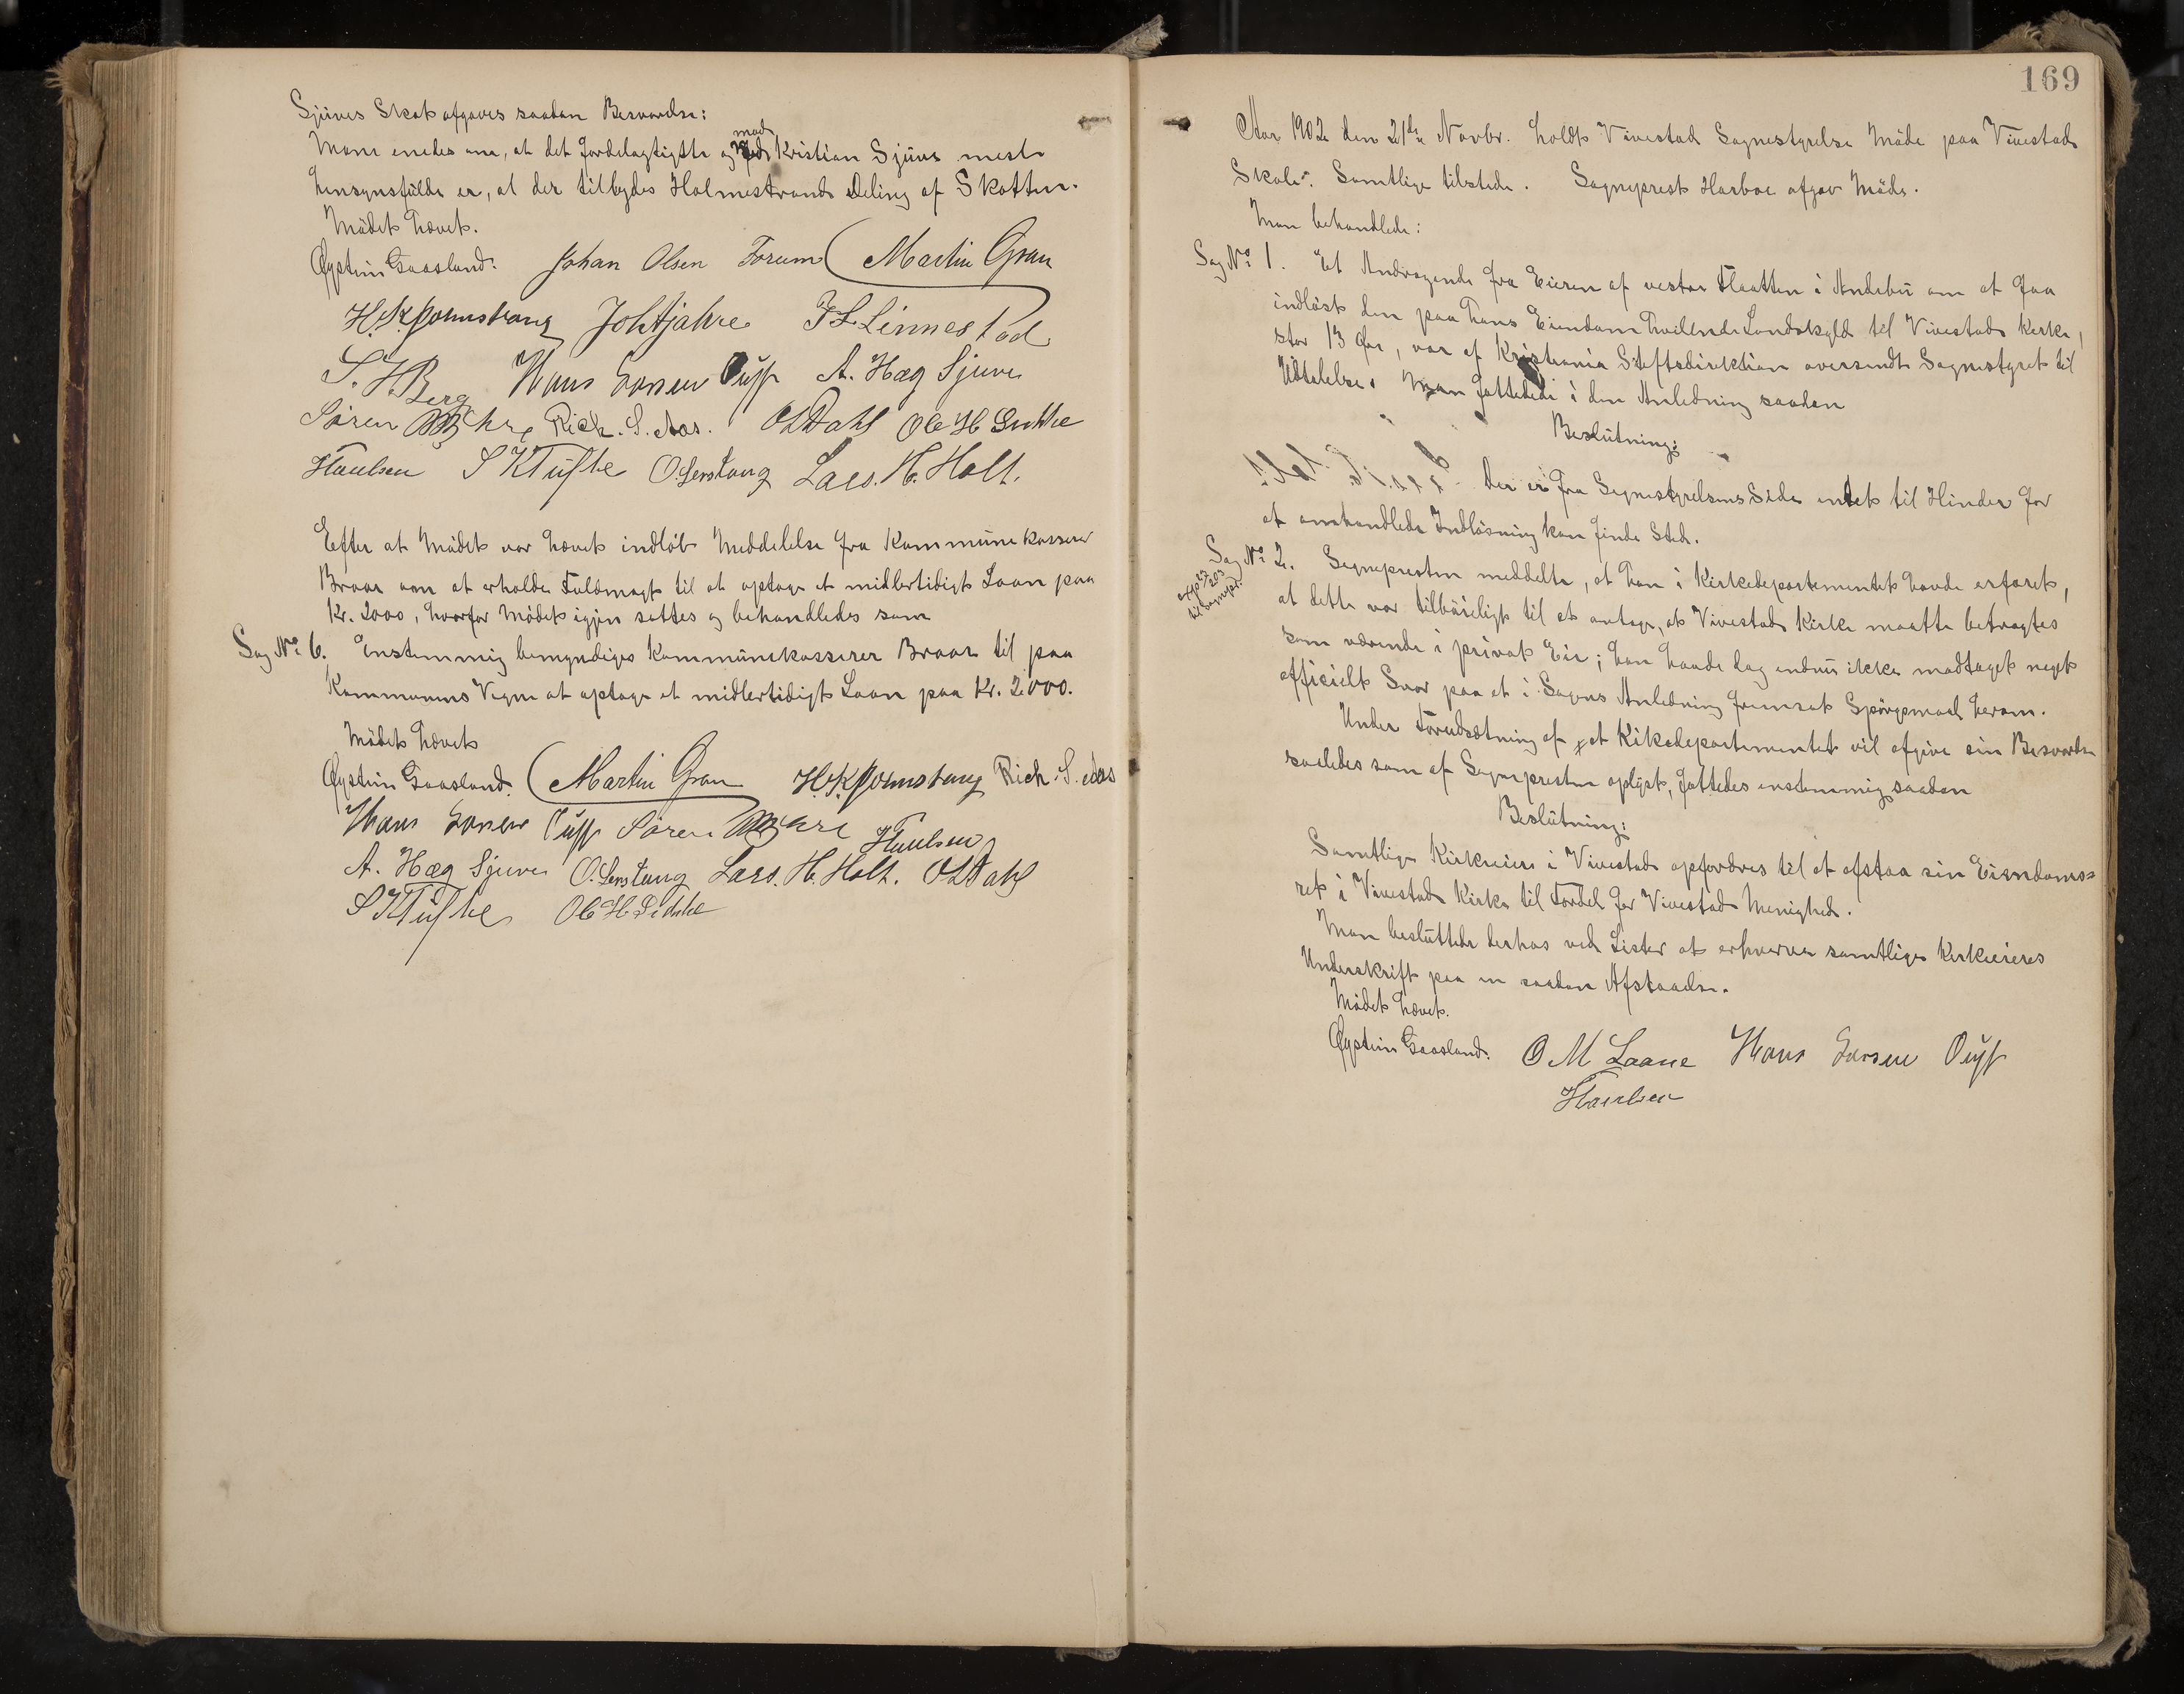 Sjuves Skat afgaves saadan Besvarelse:
Man enedes om, at det fordelagtigste og mod Kristian Sjuve mest
hensynsfulde er, at der tilbydes Holmestrand Deling af Skatten.
Mødet hævet.
Øystein Gaasland. Johan Olsen Forum Martin Gran
H. K. Johtjahre J L Linnestad
S. H. Berg Hans Larsen A. Hæg Sjuve
Søren Rich. S. Aas. O L Dahl Ole H
Paulsen S K Tufte O. Lerstang Lars. H. Holt.
Efter at Mødet var hævet indløb Meddelelse fra Kommunekasserer
Braar om at erholde Fuldmagt til at optage et midlertidigt Laan paa
Kr. 2000, hvorfor Mødet igjen sattes og behandledes som
Sag No 6. Enstemmig bemyndiges Kommunekasserer Braar til paa
Kommunens Vegne at optage et midlertidigt Laan paa Kr. 2000.
Mødet hævet
Øystein Gaasland. Martin Gran H. K. Rich. S. Aas
Hans Larsen Søren Paulsen
A. Hæg Sjuve O. Lerstang Lars. H. Holt. O L Dahl
S K Tufte Ole H
169
Aar 1902 den 21de Novbr. holdt Vivestad Sognestyrelse Møde paa Vivestad
Skole. Samtlige tilstede. Sogneprest Harboe afgav Møde.
Man behandlede:
Sag No 1. Et Andragende fra Eieren af vestre Flaatten i Andebu om at faa
indløst den paa hans Eiendom hvilende Landskyld til Vivestad Kirke,
stor 13 , var af Kristiania Stiftsdirektion oversendt Sognestyret til
Udtalelse. Man fattede i den Anledning saadan
Beslutning:
Der er fra Sognestyrelsens Side intet til Hinder for
at omhandlede Indløsning kan finde Sted.
Sag No 2. Sognepresten meddelte, at han i Kirkedepartementet havde erfaret,
at dette var tilbøieligt til at antage, at Vivestad Kirke maatte betragtes
som værende i privat Eie; han havde dog endnu ikke modtaget noget
officielt Svar paa et i Sagens Anledning fremsat Spørgsmaal herom.
Under Forudsætning af at Kikedepartementet vil afgive sin Besvarelse
saaledes som af Sognepresten oplyst, fattedes enstemmig saadan
Beslutning:
Samtlige Kirkeeiere i Vivestad opfordres til at afstaa sin Eiendoms=
ret i Vivestad Kirke til Fordel for Vivestad Menighed.
Man besluttede derhos ved Lister at erhverve samtlige Kirkeeieres
Underskrift paa en saadan Afstaaelse.
Mødet hævet.
Øystein Gaasland. O M Laane Hans Larsen
Paulsen